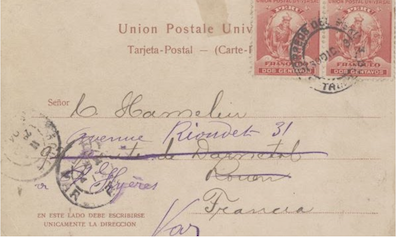 Union Postale Univ
Tarjeta-Postal — (Carte-P
PERU
PERU
FRANQUEO
DOS CENTAVOS
DOS CENTAVOS
CORREOS DEL
Señor
Hamelin
avenue Riondet 31
Darnetal
Hyères
Rouen
Francia
Var
EN ESTE LADO DEBE ESCRIBIRSE
UNICAMENTE LA DIRECCION